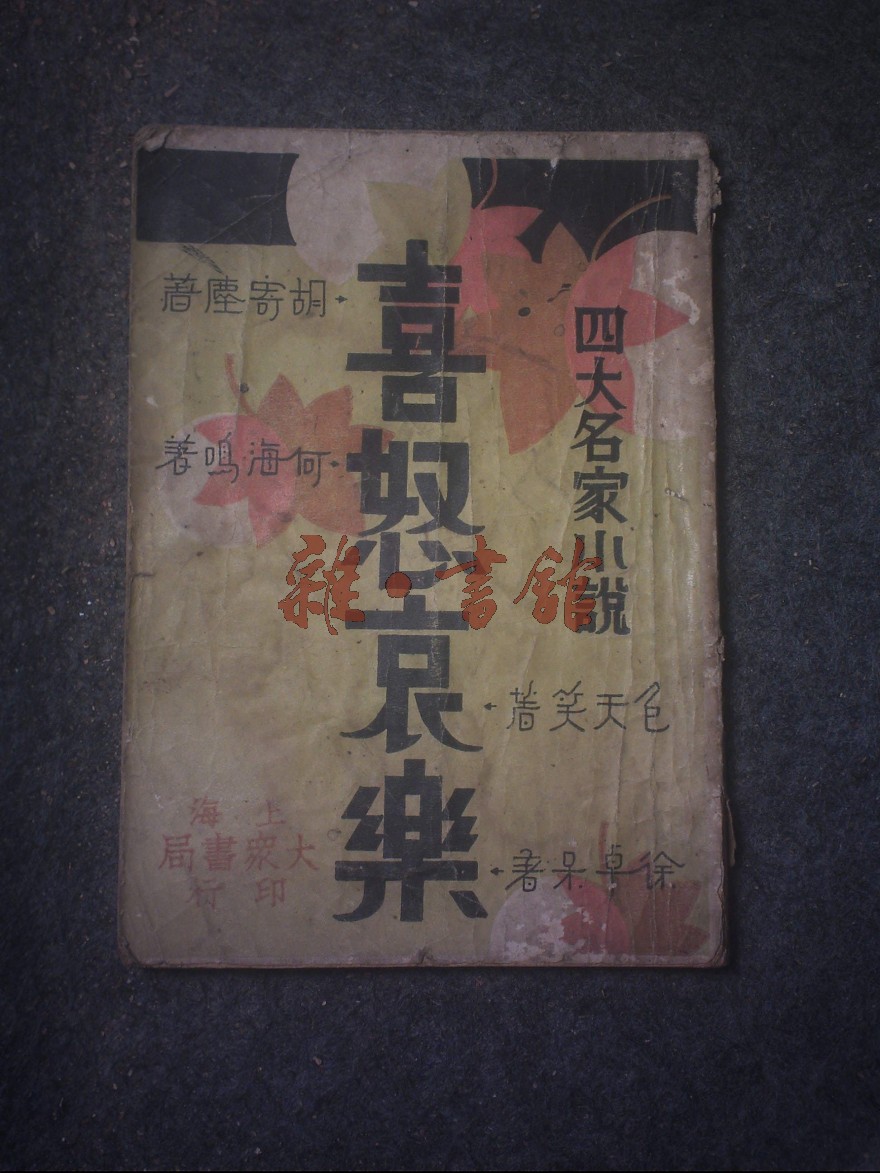 四大名家小說
喜怒哀樂
胡寄塵著
何海鳴著
包天笑著
徐卓呆著
上海
大衆書局
印行
雜·書舘